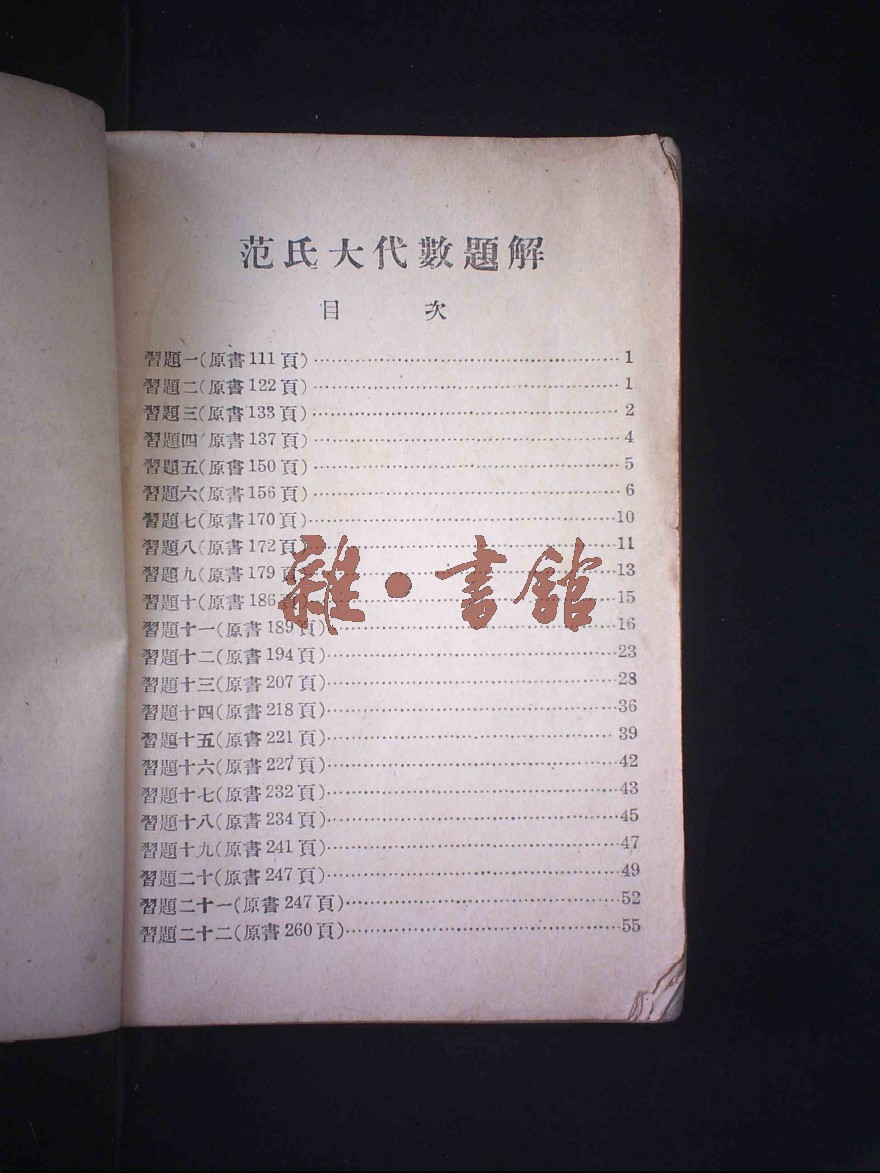 范氏大代數題解
目 次
習題一(原書111頁)…………1
習題二(原書122頁)…………1
習題三(原書133頁)…………2
習題四(原書137頁)…………4
習題五(原書150頁)…………5
習題六(原書156頁)…………6
習題七(原書170頁)…………10
習題八(原書172頁)…………11
習題九(原書179頁)…………13
習題十(原書186頁)…………15
習題十一(原書189頁)…………16
習題十二(原書194頁)…………23
習題十三(原書207頁)…………28
習題十四(原書218頁)…………36
習題十五(原書221頁)…………39
習題十六(原書227頁)…………42
習題十七(原書232頁)…………43
習題十八(原書234頁)…………45
習題十九(原書241頁)…………47
習題二十(原書247頁)…………49
習題二十一(原書247頁)…………52
習題二十二(原書260頁)…………55
雜·書館